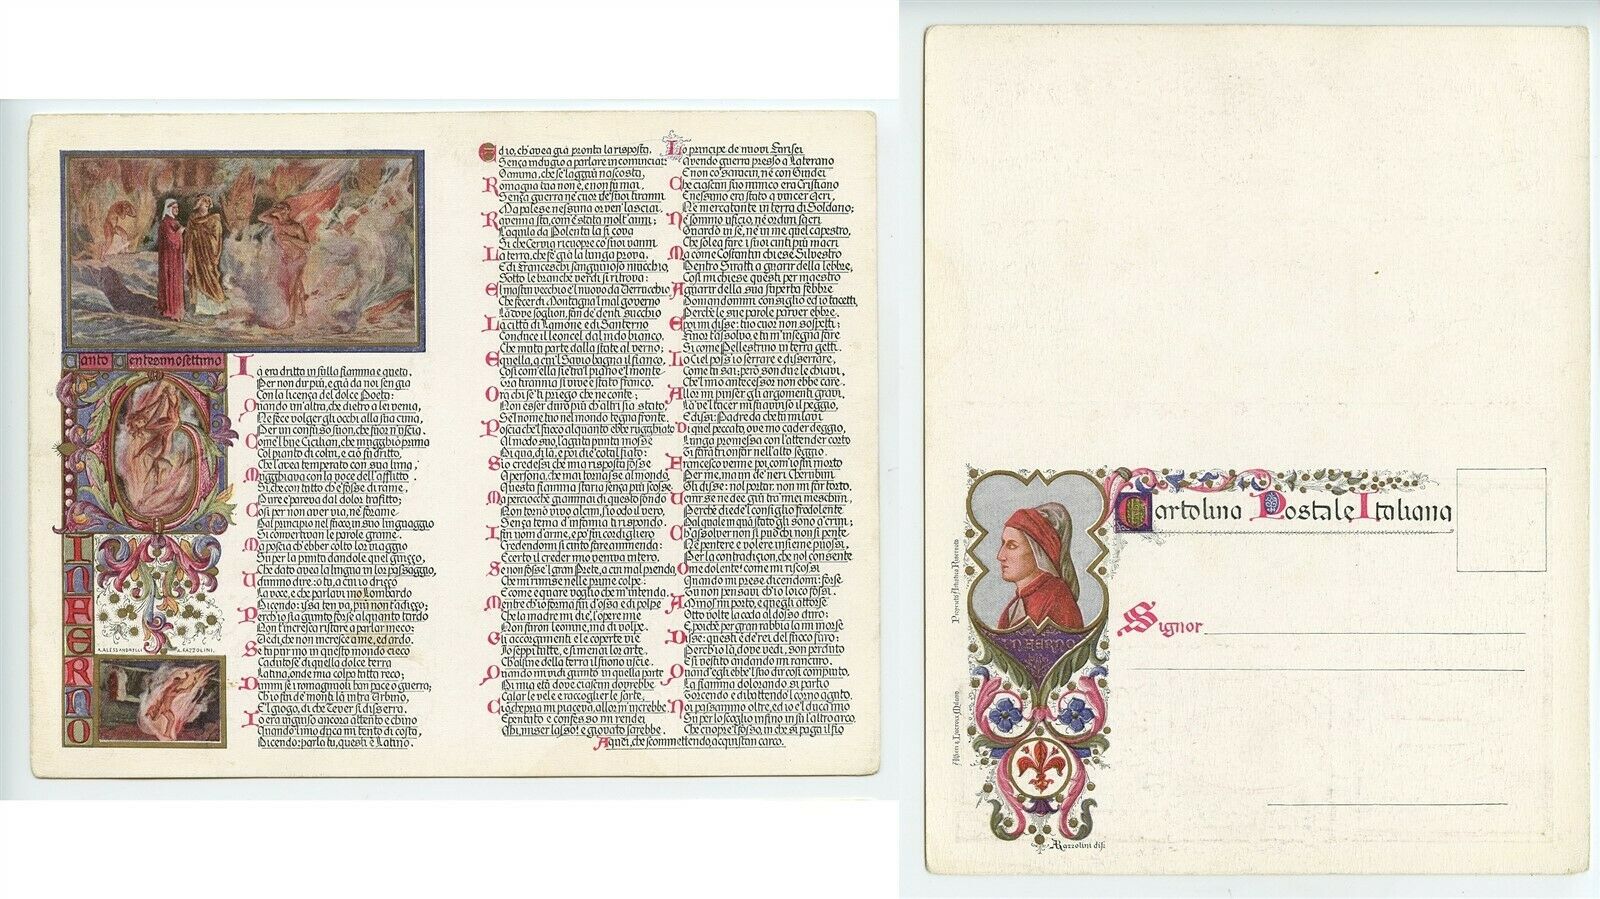 Canto Ventesimosettimo
INFERNO
A. ALESSANDRELLI A. RAZZOLINI,
Ià era dritta in sulla fiamma e queta,
Per non dir più, e già da noi sen gia
Con la licenza del dolce Poeta:
Quando un'altra, che dietro a lei venia,
Ne fece volger gli occhi alla sua cima,
Per un confuso suon, che fuor n'uscia.
Come l bue Cicilian, che mugghiò prima
Col pianto di colui, e ciò fu dritto,
Che l'avea temperato con sua lima,
Mugghiava con la voce dell'afflitto,
Sì che con tutto ch'e' fosse di rame,
Pure e' pareva dal dolor trafitto:
Così per non aver via, nè forame
Dal principio nel fuoco, in suo linguaggio
Si convertivan le parole grame.
Ma poscia ch'ebber colto lor viaggio
Su per la punta, dandole quel guizzo,
Che dato avea la lingua in lor passaggio,
Udimmo dire: o tu, a cui io drizzo
La voce, e che parlavi mo Lombardo
Dicendo: issa ten va, più non t'adizzo;
Perch'io sia giunto forse alquanto tardo
Non t'incresca ristare a parlar meco:
Vedi, che non incresce a me, ed ardo.
Se tu pur mo in questo mondo cieco
Caduto se' di quella dolce terra
Latina, onde mia colpa tutta reco;
Dimmi se i romagnuoli han pace o guerra;
Ch'io fui de' monti là intra Urbino,
E'l giogo, di che Tever si disserra.
Io era ingiuso ancora attento e chino
Quando l mio duca mi tentò di costa,
Dicendo: parla tu, questi è Latino.
Ed io, ch'avea già pronta la risposta,
Senza indugio a parlare incominciai:
O anima, che se' laggiù nascosta,
Romagna tua non è, e non fu mai,
Senza guerra ne' cuor de' suoi tiranni
Ma palese nessuna or ven lasciai.
Ravenna sta, com'è stata molt'anni;
L'aquila da Polenta la si cova
Sì che Cervia ricuopre co' suoi vanni
La terra, che fe' già la lunga prova,
E di Franceschi sanguinoso mucchio,
Sotto le branche verdi si ritrova:
E'l mastin vecchio e l nuovo da Verrucchio
Che fecer di Montagna l mal governo
Là dove soglion, fan de' denti succhio
La città di Lamone e di Santerno
Conduce il leoncel dal nido bianco,
Che muta parte dalla state al verno;
E quella, a cui l Savio bagna il fianco,
Così com'ella sie' tra l piano e l monte
Tra tirannia si vive e stato franco.
Ora chi se' ti priego che ne conte;
Non esser duro più ch'altri sia stato,
Se l nome tuo nel mondo tegna fronte.
Poscia che l fuoco alquanto ebbe rugghiato
Al modo suo, l'aguta punta mosse
Di qua, di là, e poi diè cotal fiato:
S'io credessi che mia risposta fosse
A persona, che mai tornasse al mondo,
Questa fiamma staria senza più scosse.
Ma perciocchè giammai di questo fondo
Non tornò vivo alcun, s'io odo il vero,
Senza tema d'infamia ti rispondo.
I' fui uom d'arme, e po' fui cordigliero
Credendomi sì cinto fare ammenda:
E certo il creder mio veniva intero,
Se non fosse l gran Prete, a cui mal prenda
Che mi rimise nelle prime colpe:
E come e quare voglio che m'intenda.
Mentre ch'io forma fui d'ossa e di polpe
Che la madre mi diè, l'opere mie
Non furon leonine, ma di volpe.
Gli accorgimenti e le coperte vie
Io seppi tutte, e sì menai lor arte,
Ch'al fine della terra il suono uscie.
Quando mi vidi giunto in quella parte
Di mia età dove ciascun dovrebbe
Calar le vele e raccoglier le sarte,
Ciò che pria mi piaceva, allor m'increbbe,
E pentuto e confesso mi rendei
Ahi, miser lasso! e giovato sarebbe.
Lo principe de' nuovi Farisei
Avendo guerra presso a Laterano
E non co' Saracin, nè con Giudei
Che ciascun suo nimico era Cristiano
E nessuno era stato a vincer Acri,
Nè mercatante in terra di Soldano;
Nè sommo uficio, nè ordini sacri
Guardò in se, nè in me quel capestro,
Che solea fare i suoi cinti più macri
Ma come Costantin chiese Silvestro
Dentro Siratti a guarir della lebbre,
Così mi chiese questi per maestro
A guarir della sua superba febbre
Domandommi consiglio ed io tacetti,
Perchè le sue parole parver ebbre.
E poi mi disse: tuo cuor non sospetti;
Finor t'assolvo, e tu m'insegna fare
Sì come Pellestrino in terra getti.
Lo Ciel poss'io serrare e disserrare,
Come tu sai; però son due le chiavi,
Che l mio antecessor non ebbe care.
Allor mi pinser gli argomenti gravi,
Là've l tacer mi fu avviso il peggio,
E dissi: Padre da che tu mi lavi
Di quel peccato, ove mo cader deggio,
Lunga promessa con l'attender corto
Ti farà trionfar nell'alto seggio.
Francesco venne poi com'io fui morto
Per me, ma un de' neri Cherubini
Gli disse: nol portar: non mi far torto.
Venir se ne dee giù tra' miei meschini,
Perchè diede l consiglio frodolente
Dal quale in qua stato gli sono a' crini;
Ch'assolver non si può chi non si pente,
Nè pentere e volere insieme puossi,
Per la contraddizion, che nol consente
O me dolente! come mi riscossi
Quando mi prese dicendomi: forse
Tu non pensavi ch'io loico fossi.
A Minos mi portò, e quegli attorse
Otto volte la coda al dosso duro:
E, poichè per gran rabbia la si morse
Disse: questi è de' rei del fuoco furo:
Perch'io là, dove vedi, son perduto
E sì vestito andando mi rancuro.
Quand'egli ebbe l suo dir così compiuto,
La fiamma dolorando si partio
Torcendo e dibattendo l corno aguto.
Noi passammo oltre, ed io e l duca mio
Su per lo scoglio infino in su l'altro arco,
Che cuopre l fosso, in che si paga il fio
A quei, che scommettendo acquistan carco.
Cartolina Postale Italiana
Signor
INFERNO
Proprietà Artistica Riservata
Alfieri & Lacroix Milano
A Razzolini dis.